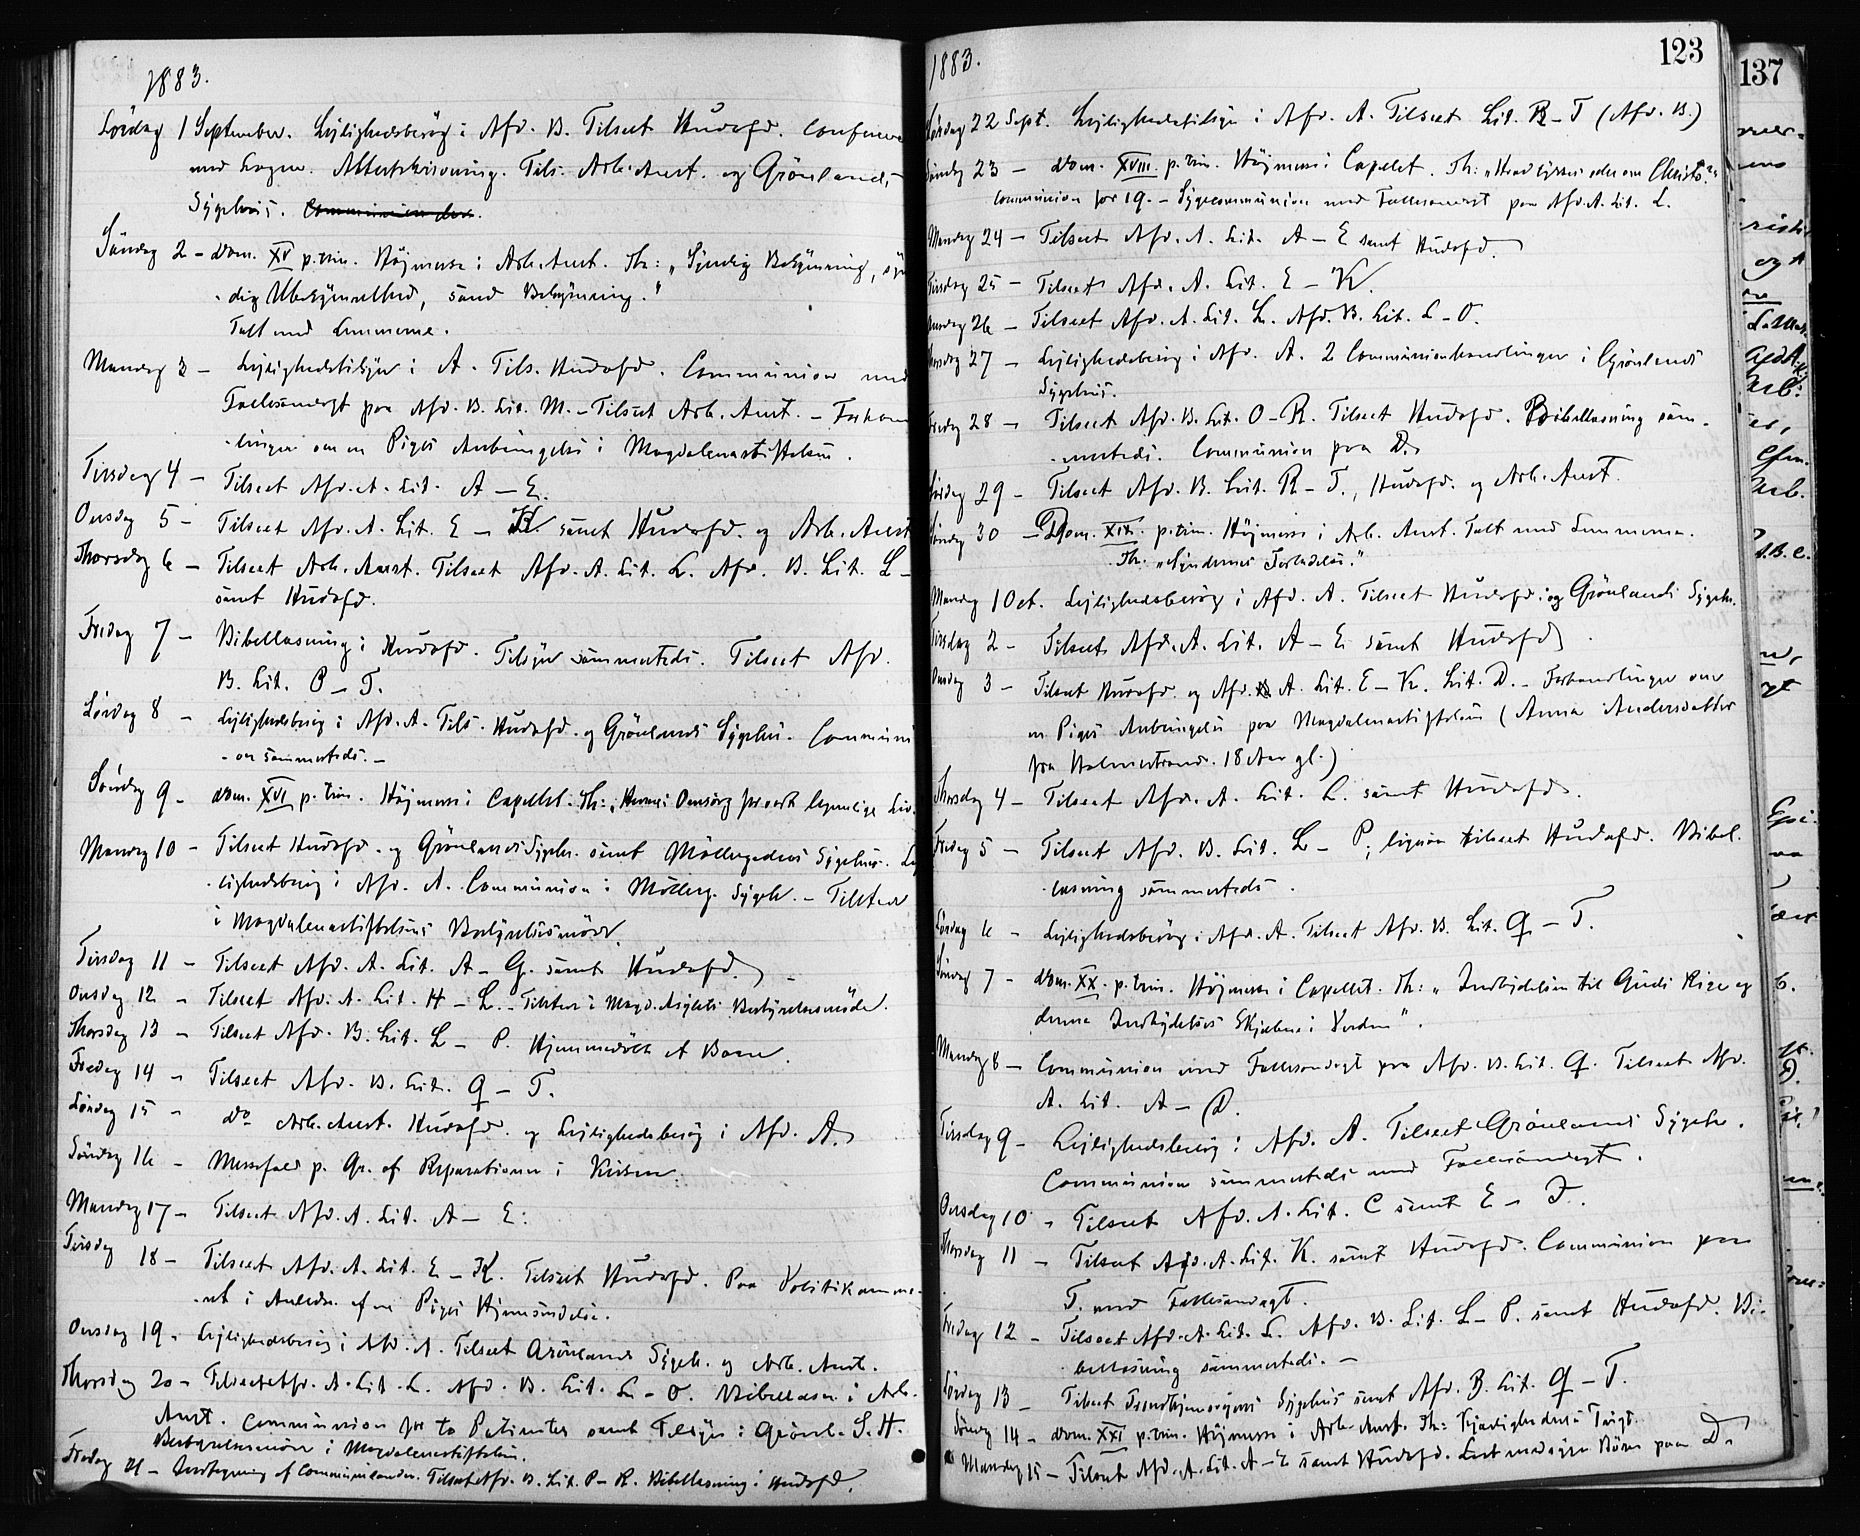 1883.
Lördag 1 September. Lejlighedsbesög i Afd. B. Tilseet Hudafd. Conference
med Lægen. Attestskrivning. Tils. Arb. Anst. og Grönlands
Sygehus.
Söndag 2 - dom. XV p. trin. Höjmesse i Arb. Anst. Th: "Syndig Bekymring, syn
-dig Ubekymrethed, sand Bekymring."
Talt med Lemmerne.
Mandag 3 - Lejlighedstilsyn i A. Tils. Hudafd. Communion med
Fællesandagt paa Afd. B. Lit. M. - Tilseet Arb. Anst. - Forhand
-linger om en Piges Anbringelse i Magdalenastiftelsen.
Tirsdag 4 - Tilseet Afd. A. Lit. A - E.
Onsdag 5 - Tilseet Afd. A. Lit. E - K samt Hudafd. og Arb. Anst
Thorsdag 6 - Tilseet Arb. Anst. Tilseet Afd. A. Lit. L. Afd. B. Lit. L -
samt Hudafd.
Fredag 7 - Bibellæsning i Hudafd. Tilsyn sammesteds. Tilseet Afd.
B. Lit. P - T.
Lördag 8 - Lejlighedsbesög i Afd. A. Tils. Hudafd. og Grönlands Sygehus. Communi
-on sammesteds. -
Söndag 9 - dom. XVI p. trin. Höjmesse i Capellet. Th: "Herrens Omsorg for vort legemlige Liv.
Mandag 10 - Tilseet Hudafd. og Grönlands Sygeh. samt Möllergadens Sygehus. Lej
-lighedsbesög i Afd. A. Communion i Möllerg. Sygeh. - Tilstede
i Magdalenastiftelsens Bestyrelsesmöde.
Tirsdag 11 - Tilseet Afd. A. Lit. A - G. samt Hudafd.
Onsdag 12 - Tilseet Afd. A. Lit. H - L. - Tilstede i Magd. Asylets Bestyrelsesmöde.
Thorsdag 13 - Tilseet Afd. B. Lit. L - P. Hjemmedöbt et Barn.
Fredag 14 - Tilseet Afd. B. Lit. Q - T.
Lördag 15 - do Arb. Anst. Hudafd. og Lejlighedsbesög i Afd. A.
Söndag 16 - Messefald p. Gr. af Reparationer i Kirken.
Mandag 17 - Tilseet Afd. A. Lit. A - E.
Tirsdag 18 - Tilseet Afd. A. Lit. E - K. Tilseet Hudafd. Paa Politikamme-
-ret i Anledn. af en Piges Hjemsendelse.
Onsdag 19 - Lejlighedsbesög i Afd. A. Tilseet Grönlands Sygeh. og Arb. Anst.
Thorsdag 20 - Tilseet Afd. A. Lit. L. Afd. B. Lit. L - O. Bibellæsn. i Arb.
Anst. Communion for to Patienter samt Tilsyn i Grönl. S. H.
Bestyrelsesmöde i Magdalenastiftelsen.
Fredag 21 - Indtegning af Communicanter. Tilseet Afd. B. Lit. P - R. Bibellæsning i Hudafd.
1883.
123
Lördag 22 Sept. Lejlighedstilsyn i Afd. A. Tilseet Lit. R - T (Afd. B.)
Söndag 23 - dom. XVIII. p. trin. Höjmesse i Capellet. Th: "Hvad tykkes eder om Christo?"
Communion for 19. - Sygecommunion med Fællesandagt paa Afd. A. Lit. L.
Mandag 24 - Tilseet Afd. A. Lit. A - E samt Hudafd.
Tirsdag 25 - Tilseet Afd. A. Lit. E - K.
Onsdag 26 - Tilseet Afd. A. Lit. L. Afd. B. Lit. L - O.
Thorsdag 27 - Lejlighedsbesög i Afd. A. 2 Communionhandlinger i Grönlands
Sygehus.
Fredag 28 - Tilseet Afd. B. Lit. O - R. Tilseet Hudafd. Bibellæsning sam-
-mesteds. Communion paa D.
Lördag 29 - Tilseet Afd. B. Lit. R - T., Hudafd. og Arb. Anst.
Söndag 30 - Dom. XIX. p. trin. Höjmesse i Arb. Anst. Talt med Lemmerne.
Th. "Syndernes Forladelse."
Mandag 1 Oct. Lejlighedsbesög i Afd. A. Tilseet Hudafd. og Grönlands Sygeh.
Tirsdag 2 - Tilseet Afd. A. Lit. A - E samt Hudafd
Onsdag 3 - Tilseet Hudafd. og Afd. A. Lit. E - K. Lit. D. - Forhandlinger om
en Piges Anbringelse paa Magdalenastiftelsen (Anna Andersdatter
fra Holmestrand. 18 Aar gl.)
Thorsdag 4 - Tilseet Afd. A. Lit. L. samt Hudafd.
Fredag 5 - Tilseet Afd. B. Lit. L - P; ligesaa tilseet Hudafd. Bibel-
-læsning sammesteds.
Lördag 6 - Lejlighedsbesög i Afd. A. Tilseet Afd. B. Lit. Q - T.
Söndag 7 - dom. XX. p. trin. Höjmesse i Capellet. Th: "Indbydelsen til Guds Rige og
denne Indbydelses Skjæbne i Verden".
Mandag 8 - Communion med Fællesandagt paa Afd. B. Lit. Q. Tilseet Afd.
A. Lit. A - D.
Tirsdag 9 - Lejlighedsbesög i Afd. A. Tilseet Grönlands Sygeh.
Communion sammesteds med Fællesandagt.
Onsdag 10 - Tilseet Afd. A. Lit. C samt E - J.
Thorsdag 11 - Tilseet Afd. A. Lit. K. samt Hudafd. Communion paa
T. med Fællesandagt.
Fredag 12 - Tilseet Afd. A. Lit. L. Afd. B. Lit. L - P. samt Hudafd. Bi-
-bellæsning sammesteds. -
Lördag 13 - Tilseet Trondhjemsvejens Sygehus samt Afd. B. Lit. Q - T.
Söndag 14 - dom. XXI p. trin. Höjmesse i Arb. Anst. Th: Kjærlighedens
Mandag 15 - Tilseet Afd. A. Lit. A - E samt Hudafd. paa D.
137